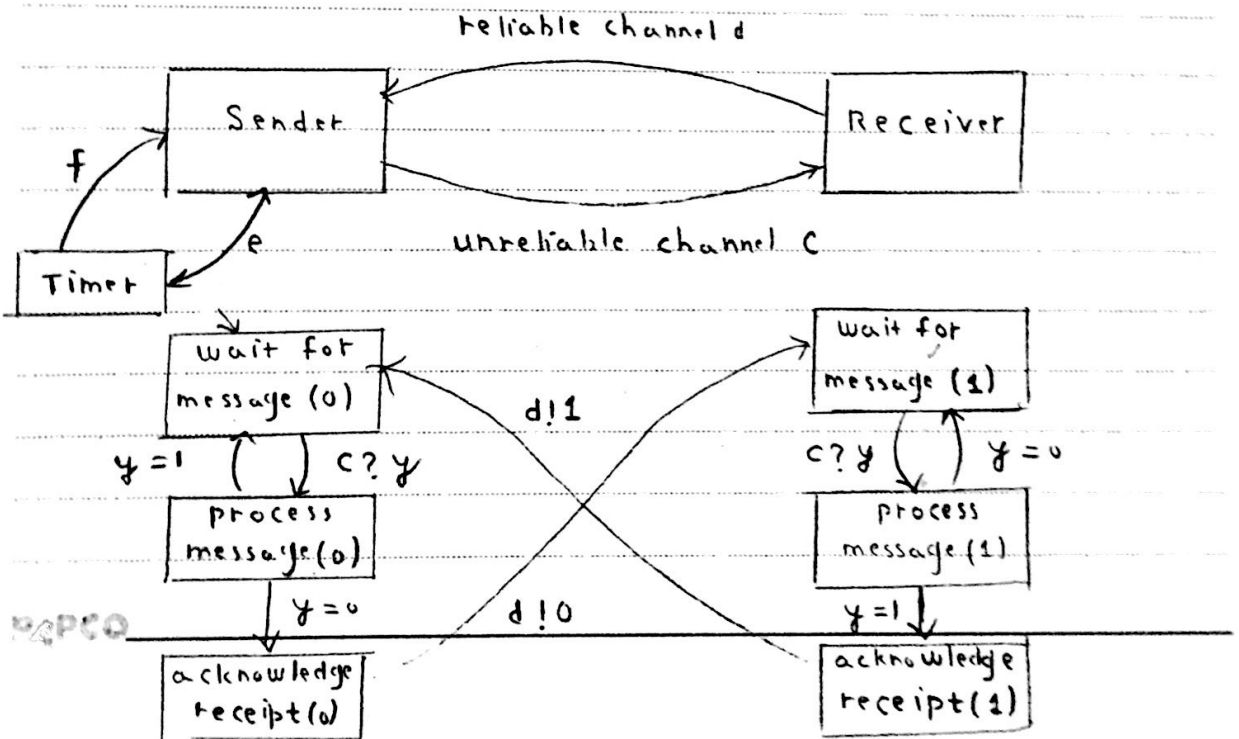 reliable channel d
Sender
Receiver
f
e
unreliable channel C
Timer
wait for
message (0)
wait for
message (1)
d!1
y=1
c? y
c? y
y=0
process
message(0)
process
message(1)
y=0
d!0
y=1
PAPCO
acknowledge
receipt(0)
acknowledge
receipt(1)